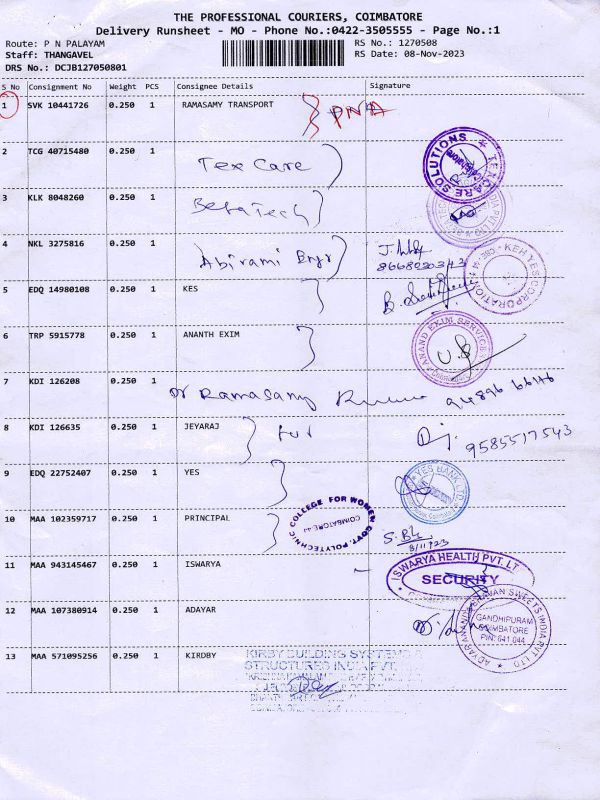 THE PROFESSIONAL COURIERS, COIMBATORE
Delivery Runsheet - MO - Phone No.:0422-3505555 - Page No.:1
Route: P N PALAYAM RS No.: 1270508
Staff: THANGAVEL RS Date: 08-Nov-2023
DRS No.: DCJB127050801
S No Consignment No Weight PCS Consignee Details Signature
1 SVK 10441726 0.250 1 RAMASAMY TRANSPORT PNA
2 TCG 40715480 0.250 1 Tex Care TEXCARE SOLUTIONS
3 KLK 8048260 0.250 1 BetaTech
4 NKL 3275816 0.250 1 Abirami KEH YES CORPORATION
5 EDQ 14980108 0.250 1 KES
6 TRP 5915778 0.250 1 ANANTH EXIM ANAND EXIM SERVICES
7 KDI 126208 0.250 1 Dr Ramasamy
8 KDI 126635 0.250 1 JEYARAJ 9585517543
9 EDQ 22752407 0.250 1 YES YES BANK LTD
10 MAA 102359717 0.250 1 PRINCIPAL GOVT. POLYTECHNIC COLLEGE FOR WOMEN COIMBATORE 8/11/23
11 MAA 943145467 0.250 1 ISWARYA ISWARYA HEALTH PVT. LT
SECURITY
12 MAA 107380914 0.250 1 ADAYAR SWEETS INDIA PVT LTD
GANDHIPURAM
COIMBATORE
PIN: 641 044
13 MAA 571095256 0.250 1 KIRDBY KIRBY BUILDING SYSTEMS &
STRUCTURES INDIA PVT.